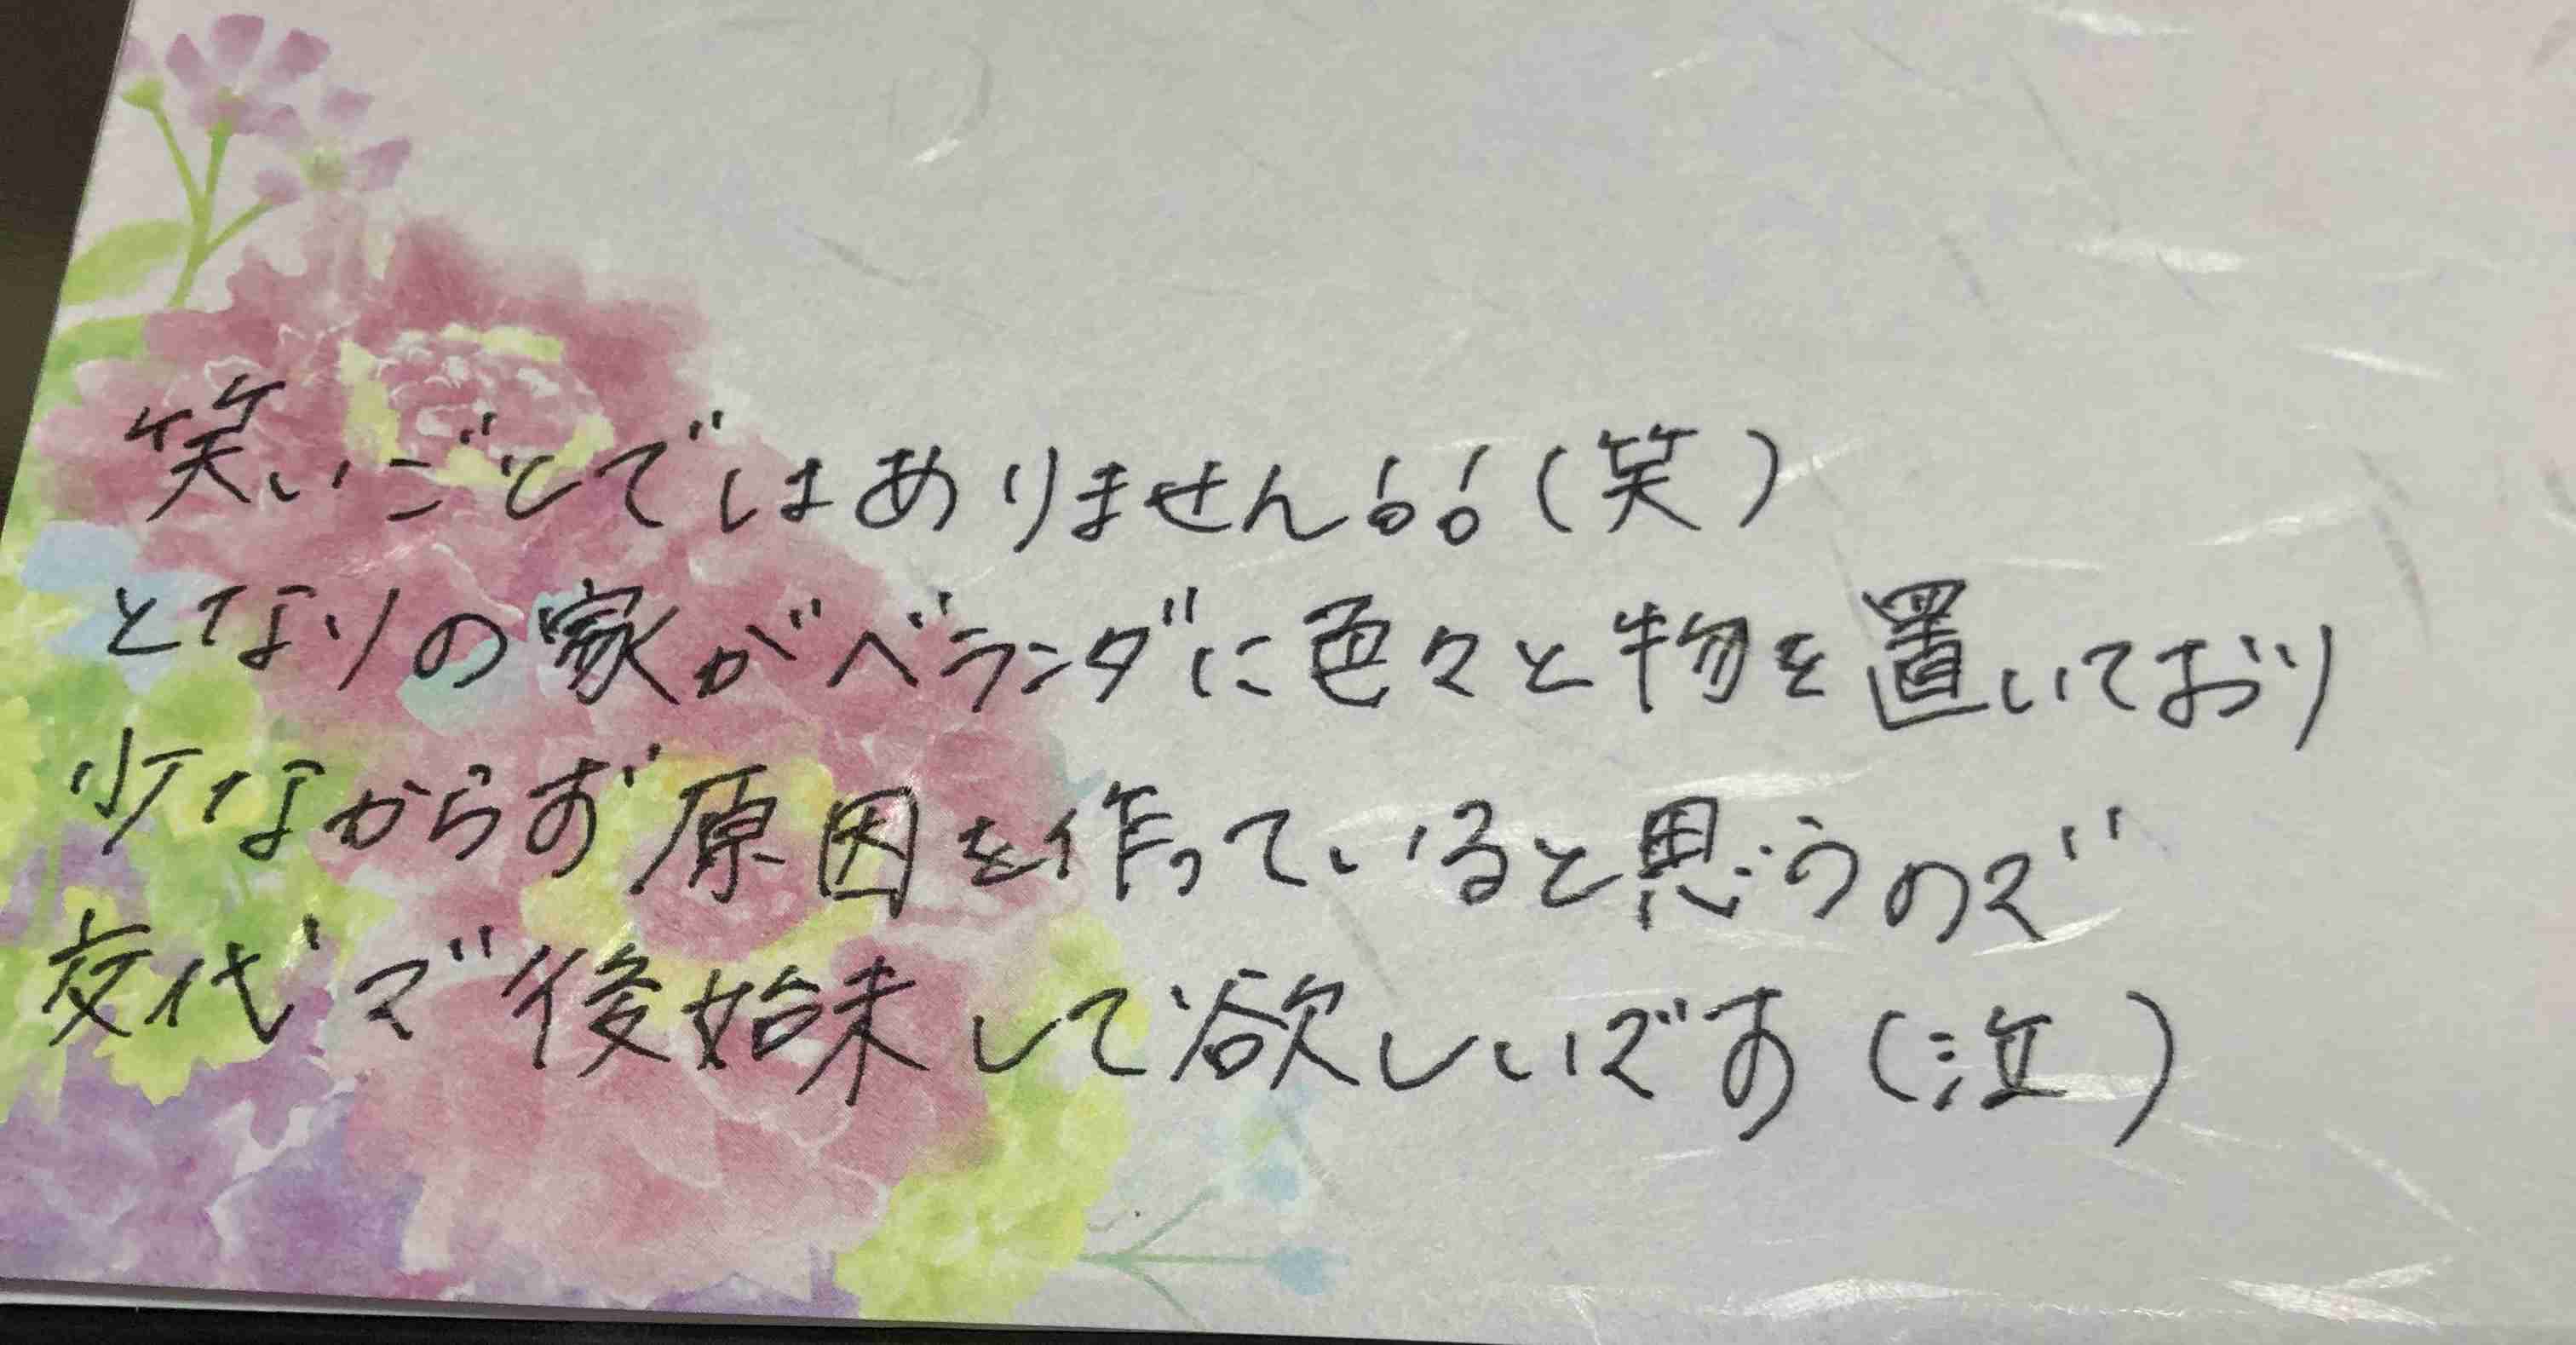 笑いごとではありません!!(笑)
となりの家がベランダに色々と物を置いており
少なからず原因を作っていると思うので
交代で後始末して欲しいです(泣)